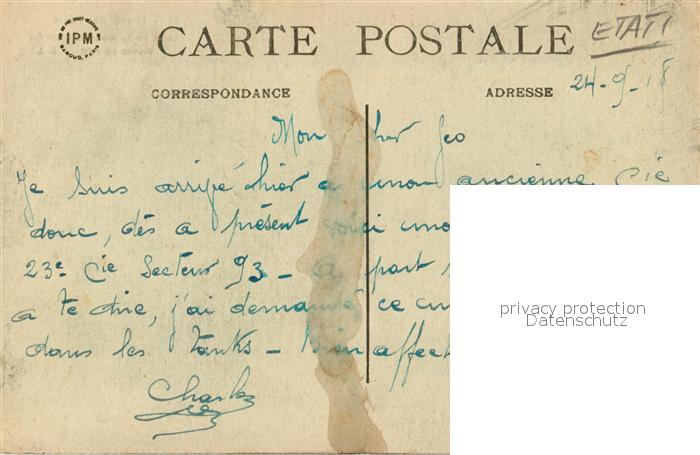 IPM
CARTE POSTALE
ETATI
CORRESPONDANCE
ADRESSE
24-9-18
Mon cher Geo
Je suis arrivé hier a mon ancienne Cie
donc, dès a présent voici
23e Cie Secteur 93 - a part
a te dire, j'ai demandé ce
dans les Tanks - Bien affect
Charles
privacy protection
Datenschutz